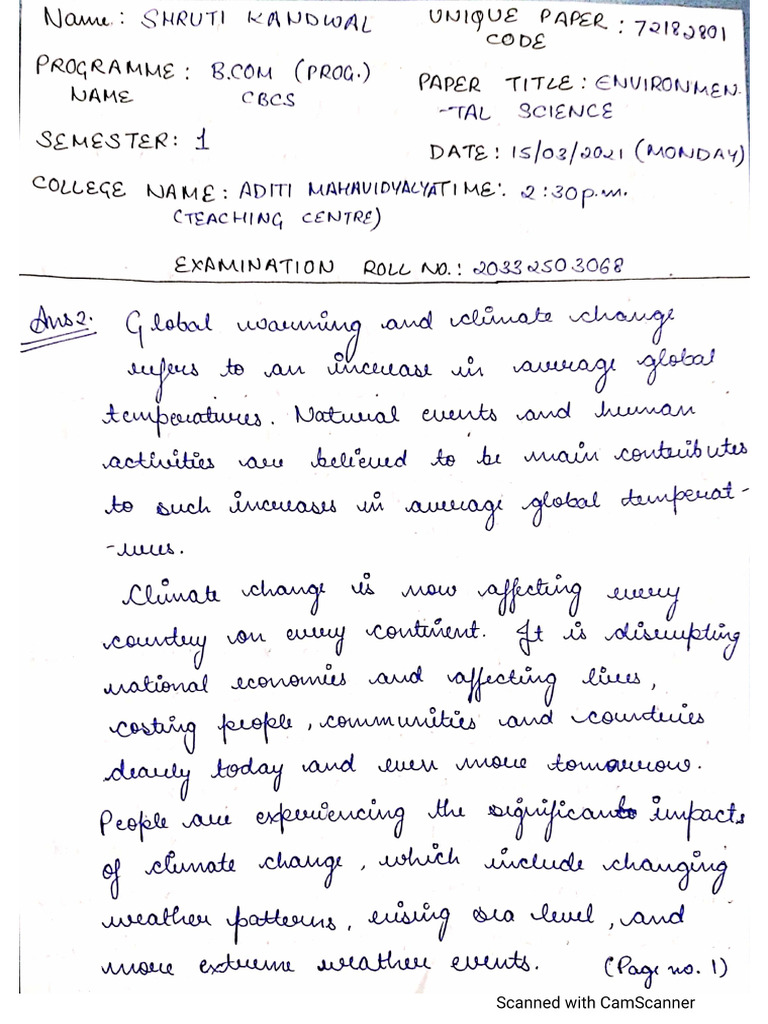 Name: SHRUTI KANDWAL
UNIQUE PAPER CODE : 72182801
PROGRAMME NAME : B.COM (PROG.) CBCS
PAPER TITLE : ENVIRONMEN-
-TAL SCIENCE
SEMESTER: 1
DATE : 15/03/2021 (MONDAY)
COLLEGE NAME : ADITI MAHAVIDYALYA
(TEACHING CENTRE)
TIME : 2:30p.m.
EXAMINATION ROLL NO. : 20332503068
Ans 2. Global warming and climate change
refers to an increase in average global
temperatures. Natural events and human
activities are believed to be main contributes
to such increases in average global temperat-
-ures.
Climate change is now affecting every
country on every continent. It is disrupting
national economies and affecting lives,
costing people, communities and countries
dearly today and even more tomorrow.
People are experiencing the significant impacts
of climate change, which include changing
weather patterns, rising sea level, and
more extreme weather events. (Page no. 1)
Scanned with CamScanner